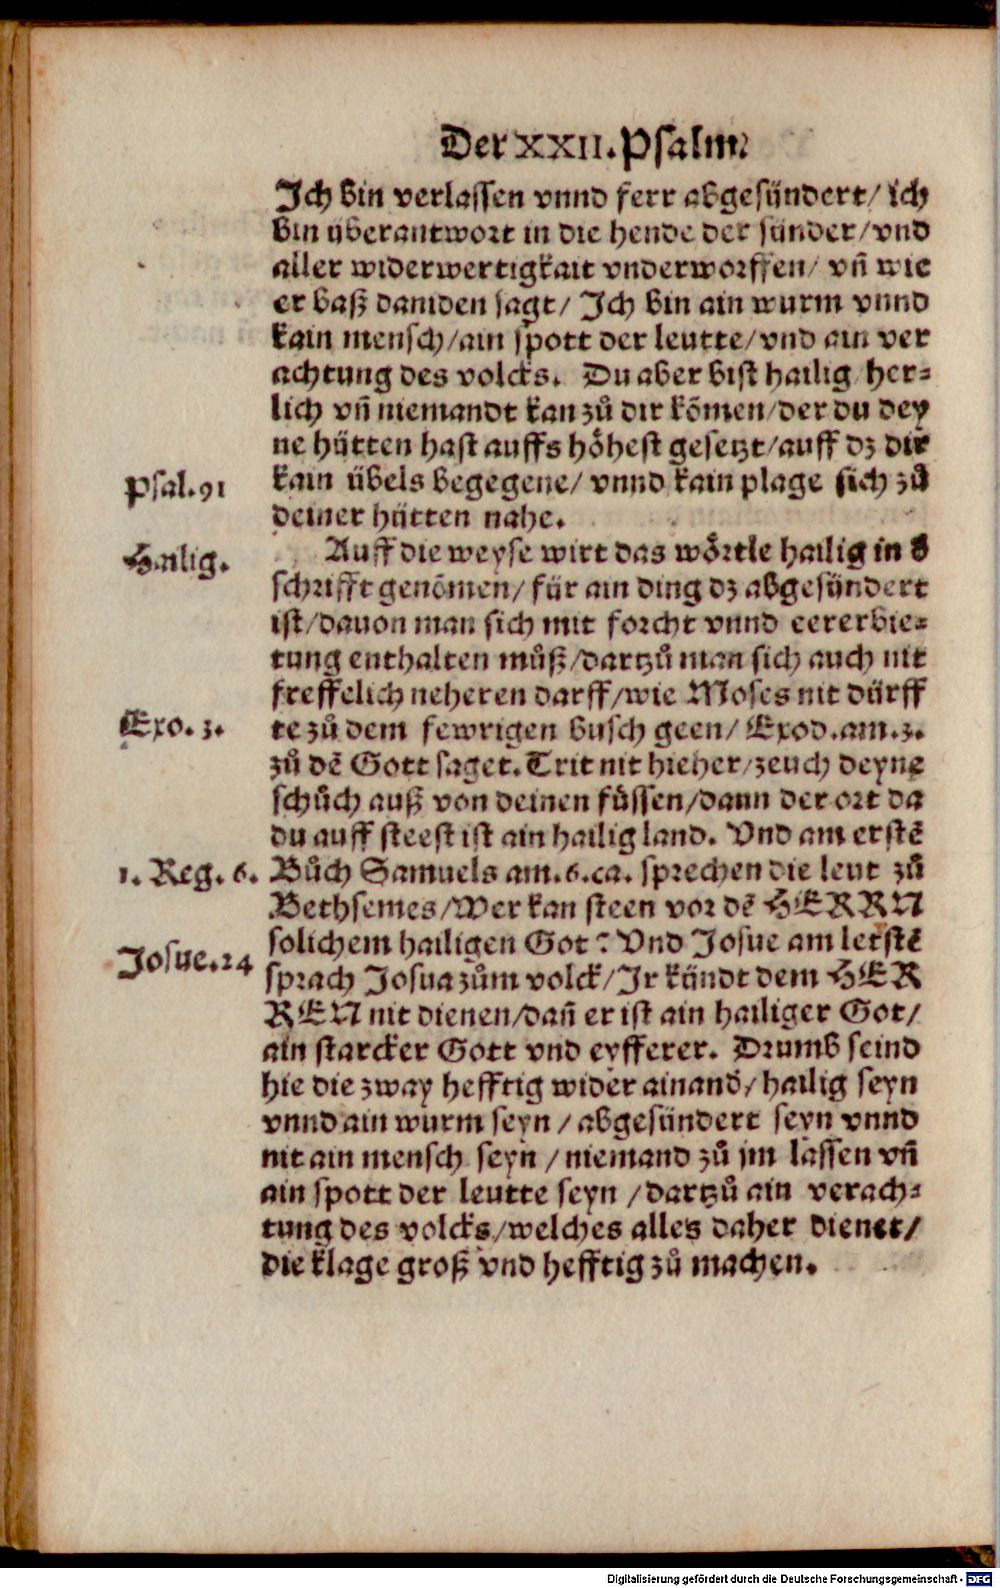 Der XXII. Psalm
Ich bin verlassen vnnd ferr abgesündert/ ich
bin überantwort in die hende der sünder/ vnd
aller widerwertigkait vnderworffen/ vñ wie
er baß daniden sagt/ Ich bin ain wurm vnnd
kain mensch/ ain spott der leutte/ vnd ain ver
achtung des volcks. Du aber bist hailig her⸗
lich vñ niemandt kan zů dir kõmen/ der du dey
ne hütten hast auffs hoͤhest gesetzt/ auff dz dir
Psal. 91
kain übels begegene/ vnnd kain plage sich zů
deiner hütten nahe.
Hailig.
Auff die weyse wirt das woͤrtle hailig in d̕
schrifft genõmen/ für ain ding dz abgesündert
ist/ dauon man sich mit forcht vnnd eererbie⸗
tung enthalten můß/ dartzů man sich auch nit
freffelich neheren darff/ wie Moses nit dürff
Exo. 3.
te zů dem fewrigen busch geen/ Exod. am. 3.
zů dẽ Gott saget. Trit nit hieher/ zeuch deyne
schůch auß von deinen füssen/ dann der ort da
du auff steest ist ain hailig land. Vnd am erstẽ
1. Reg. 6.
Bůch Samuels am. 6. ca. sprechen die leut zů
Bethsemes/ Wer kan steen vor dẽ HERRN
solichem hailigen Got? Vnd Josue am letstẽ
Josue. 24
sprach Josua zům volck/ Ir kündt dem HER
REN nit dienen/ dañ er ist ain hailiger Got/
ain starcker Gott vnd eyfferer. Drumb seind
hie die zway hefftig wider ainand̕/ hailig seyn
vnnd ain wurm seyn/ abgesündert seyn vnnd
nit ain mensch seyn/ niemand zů jm lassen vñ
ain spott der leutte seyn/ dartzů ain verach⸗
tung des volcks/ welches alles daher dienet/
die klage groß vnd hefftig zů machen.
Digitalisierung gefördert durch die Deutsche Forschungsgemeinschaft - DFG